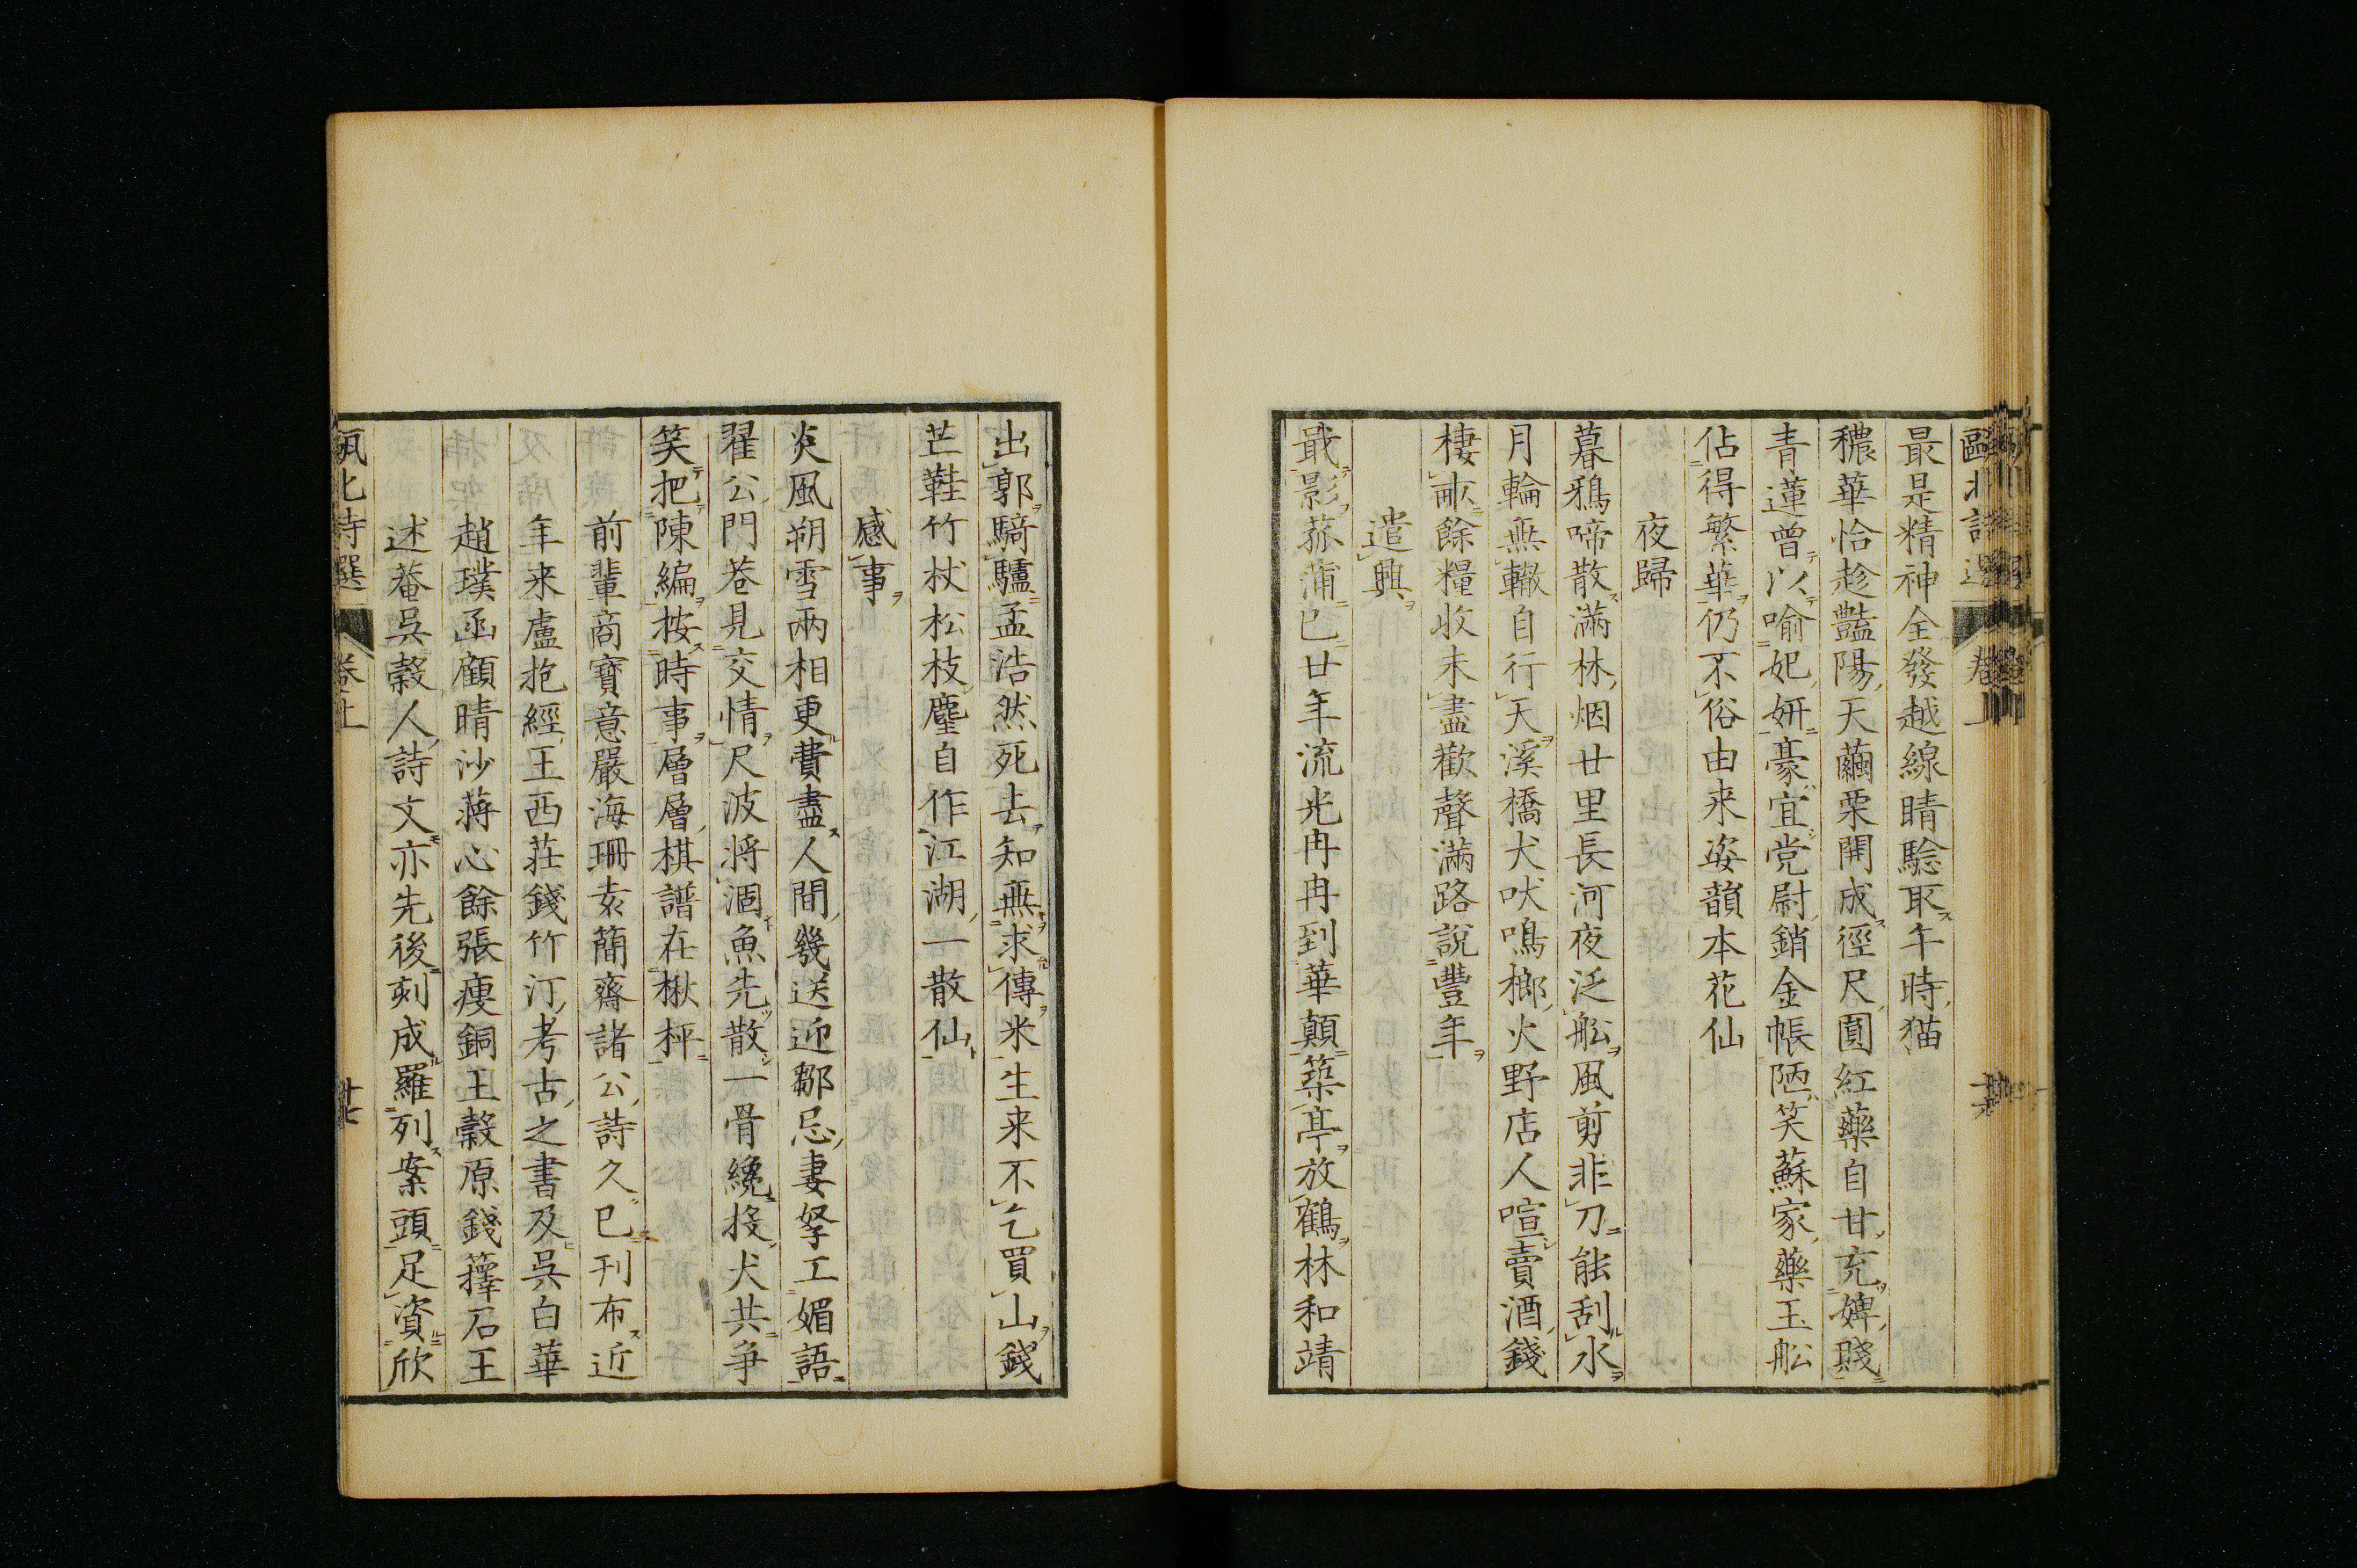 最是精神全發越線睛騐取午時猫
穠華恰趁豔陽天繭栗開成徑尺圓紅藥自甘充婢賤
青蓮曾以喻妃妍豪宜党尉銷金帳陋笑蘇家藥玉舩
佔得繁華仍不俗由来姿韻本花仙
夜歸
暮鴉啼散滿林烟廿里長河夜泛舩風剪非刀能刮水
月輪無轍自行天溪橋犬吠鳴榔火野店人喧賣酒錢
棲畝餘糧收未盡歡聲滿路說豐年
遣興
戢影菰蒲已廿年流光冉冉到華顛築亭放鶴林和靖
出郭騎驢孟浩然死去知無求傳米生来不乞買山錢
芒鞋竹杖松枝麈自作江湖一散仙
感事
炎風朔雪兩相更費盡人間幾送迎鄒忌妻孥工媚語
翟公門巷見交情尺波將涸魚先散一骨纔投犬共爭
笑把陳編按時事層層棋譜在楸枰
前輩商寶意嚴海珊袁簡齋諸公詩久已刊布近
年来盧抱經王西莊錢竹汀考古之書及吳白華
趙璞函顧晴沙蔣心餘張瘦銅王穀原錢籜石王
述菴吳穀人詩文亦先後刻成羅列案頭足資欣
甌北詩選
卷上